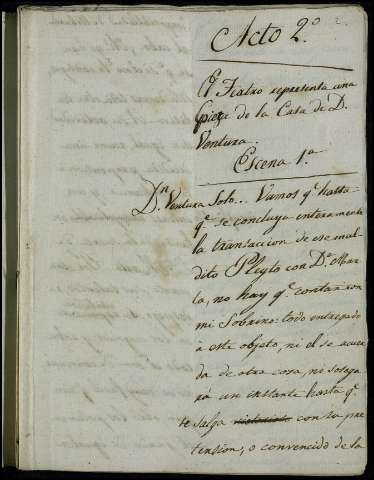 Acto 2.º
El Teatro representa una
pieza de la Casa de D.
Ventura.
Escena 1.ª
D.n Ventura Solo... Vamos q.e hasta
q.e se concluya enteramente
la transaccion de ese mal-
dito Pleyto con D.ª Mar-
ta, no hay q.e contar con
mi Sobrino: todo entregado
à este objeto, ni el se acuer
da de otra cosa, ni sosega
rà un instante hasta q.e
salga con su pre
tension, o convencido de la